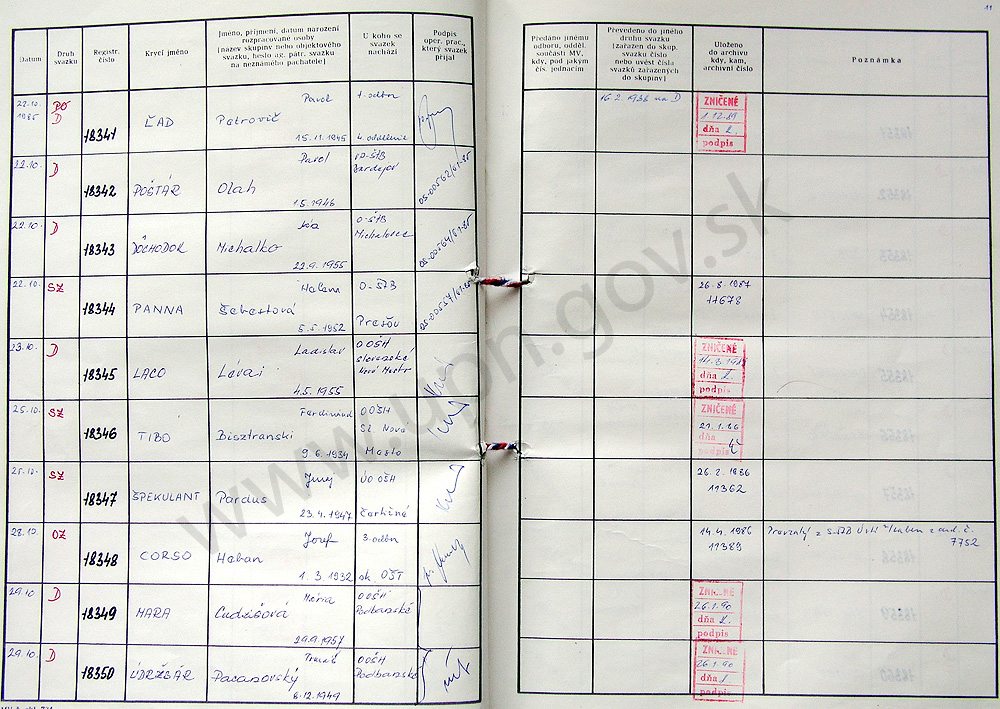 11
Datum
Druh svazku
Registr. číslo
Krycí jméno
Jméno, příjmení, datum narození
rozpracované osoby
[název skupiny nebo objektového
svazku, heslo ag. pátr. svazku
na neznámého pachatele]
U koho se
svazek
nachází
Podpis
oper. prac.,
který svazek
přijal
Předáno jinému
odboru, odděl.
součásti MV,
kdy, pod jakým
čís. jednacím
Převedeno do jiného
druhu svazku
[zařazen do skup.
svazku číslo
nebo uvést čísla
svazků zařazených
do skupiny]
Uloženo
do archivu
kdy, kam,
archivní číslo
Poznámka
22.10. 1985 PO D 18341 ĽAD Pavol Petrovič 15.11.1945 1. odbor 4. oddelenie
16.2.1988 na D
ZNIČENÉ
1.12.89
dňa
podpis
22.10. D 18342 POŠTÁR Pavol Olah 1.5.1946 Bardejov
22.10. D 18343 DÔCHODOK Michalko 22.9.1955 O-ŠTB Michalovce
22.10. SZ 18344 PANNA Helena Šebestová 5.5.1952 O-ŠTB Prešov
26.8.1987
11678
23.10. D 18345 LACO Ladislav Lévai 4.5.1955 OOŠH Slovenské Nové Mesto
ZNIČENÉ
dňa
podpis
25.10. SZ 18346 TIBO Ferdinand Bisztranski 9.6.1934 OOŠH Sl. Nové Mesto
ZNIČENÉ
21.1.86
dňa
podpis
25.10. SZ 18347 ŠPEKULANT Juraj Pardus 23.4.1947 OOŠH
26.2.1986
11362
28.10. OZ 18348 CORSO Jozef Haban 1.3.1932 3. odbor
14.4.1986
11389
7752
29.10 D 18349 MARA Mária Cudzišová 29.9.1957 OOŠH Podbanské
ZNIČENÉ
26.1.90
dňa
podpis
29.10. D 18350 ÚDRŽBÁR Pacanovský 8.12.1949 OOŠH Podbanské
ZNIČENÉ
26.1.90
dňa
podpis
www.upn.gov.sk